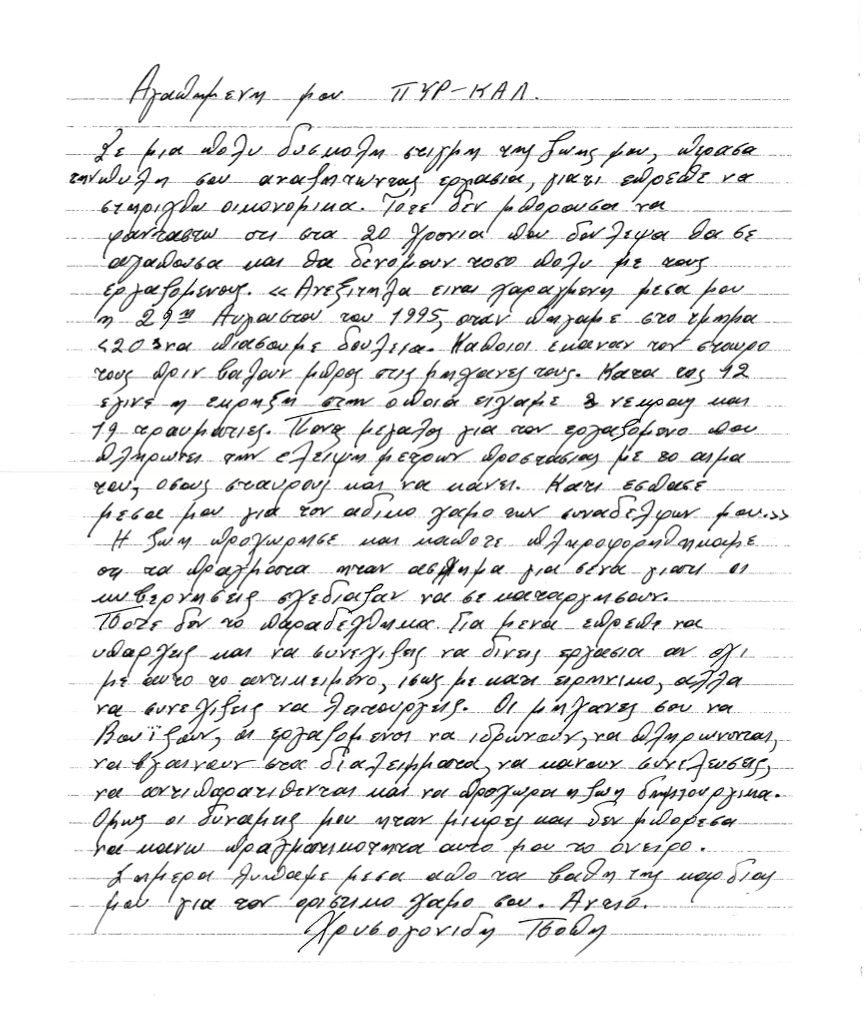 Αγαπημενη μου ΠΥΡ-ΚΑΛ.
Σε μια πολυ δυσκολη στιγμη της ζωης μου, περασα
την πυλη σου αναζητωντας εργασια, γιατι επρεπε να
στηριχθω οικονομικα. Τοτε δεν μπορουσα να
φανταστω οτι στα 20 χρονια που δουλεψα θα σε
αγαπουσα και θα δενομουν τοσο πολυ με τους
εργαζομενους. << Ανεξιτηλα ειναι χαραγμενη μεσα μου
η 29η Αυγουστου του 1995, οταν πηγαμε στο τμημα
<203 να πιασουμε δουλεια. Καποιοι εκαναν τον σταυρο
τους πριν βαλουν μπρος στις μηχανες τους. Κατα τις 12
εγινε η εκρηξη στην οποια ειχαμε 3 νεκρους και
19 τραυματιες. Πονος μεγαλος για τον εργαζομενο που
πληρωνει την ελειψη μετρων προστασιας με το αιμα
του, οσους σταυρους και να κανει. Κατι εσπασε
μεσα μου για τον αδικο χαμο των συναδελφων μου.>>
Η ζωη προχωρησε και καποτε πληροφορηθηκαμε
οτι τα πραγματα ηταν ασχημα για σενα γιατι οι
κυβερνησεις σχεδιαζαν να σε καταργησουν.
Ποτε δεν το παραδεχθηκα. Για μενα επρεπε να
υπαρχεις και να συνεχιζεις να δινεις εργασια αν οχι
με αυτο το αντικειμενο, ισως με κατι ειρηνικο, αλλα
να συνεχιζεις να λειτουργεις. Οι μηχανες σου να
Βουϊζουν, οι εργαζομενοι να ιδρωνουν, να πληρωνονται,
να βγαινουν στα διαλειμματα, να κανουν συνελευσεις,
να αντιπαρατιθενται και να προχωρα η ζωη δημιουργικα.
Ομως οι δυναμεις μου ηταν μικρες και δεν μπορεσα
να κανω πραγματικοτητα αυτο μου το ονειρο.
Σημερα λυπαμε μεσα απο τα βαθη της καρδιας
μου για τον οριστικο χαμο σου. Αντιο.
Χρυσογονιδη Τσοπη